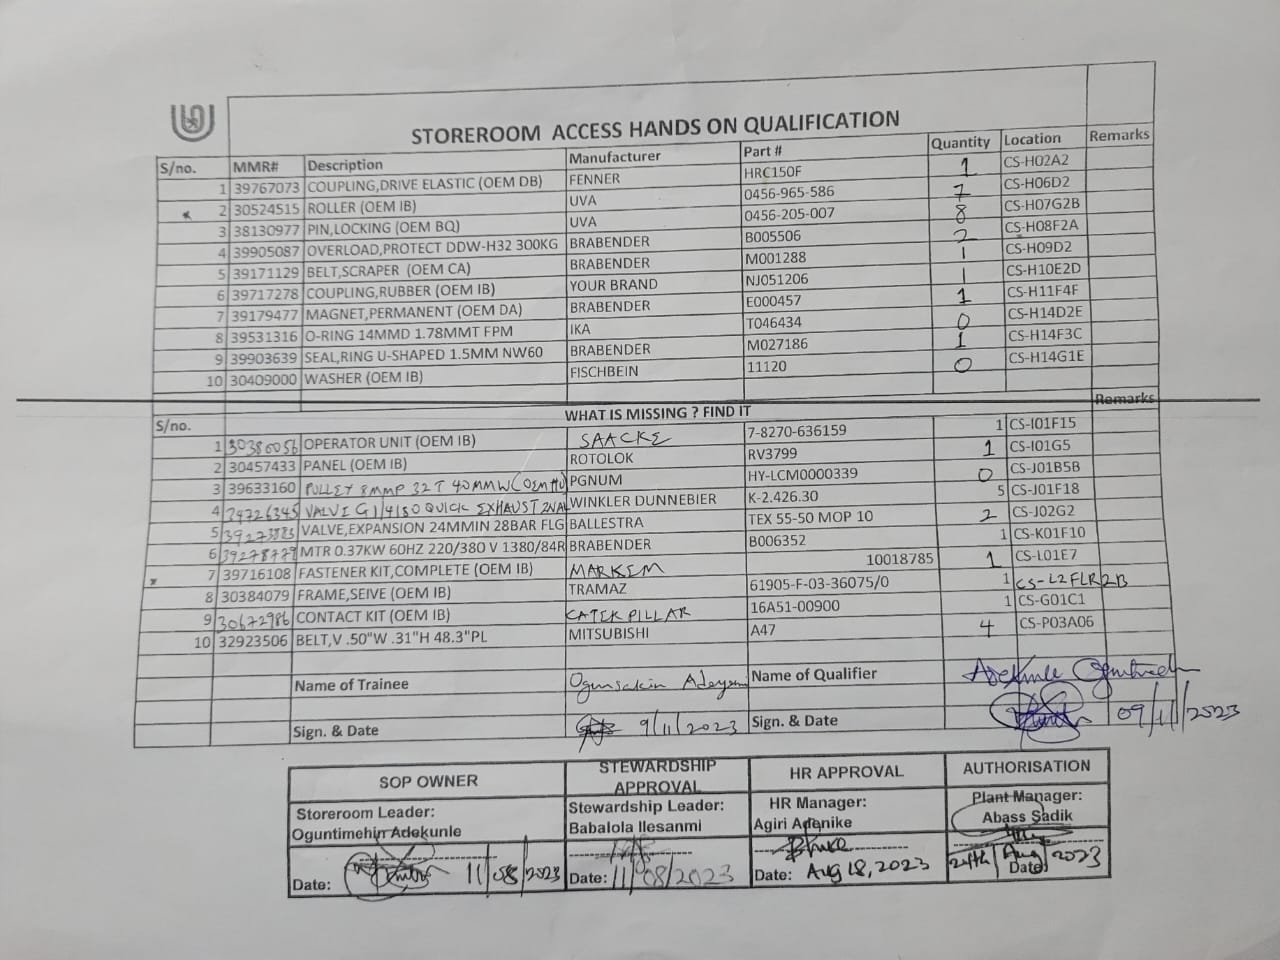 STOREROOM ACCESS HANDS ON QUALIFICATION
S/no. MMR# Description Manufacturer Part # Quantity Location Remarks
1 39767073 COUPLING,DRIVE ELASTIC (OEM DB) FENNER HRC150F 1 CS-H02A2
2 30524515 ROLLER (OEM IB) UVA 0456-965-586 7 CS-H06D2
3 38130977 PIN,LOCKING (OEM BQ) UVA 0456-205-007 8 CS-H07G2B
4 39905087 OVERLOAD,PROTECT DDW-H32 300KG BRABENDER B005506 2 CS-H08F2A
5 39171129 BELT,SCRAPER (OEM CA) BRABENDER M001288 1 CS-H09D2
6 39717278 COUPLING,RUBBER (OEM IB) YOUR BRAND NJ051206 1 CS-H10E2D
7 39179477 MAGNET,PERMANENT (OEM DA) BRABENDER E000457 1 CS-H11F4F
8 39531316 O-RING 14MMD 1.78MMT FPM IKA T046434 0 CS-H14D2E
9 39903639 SEAL,RING U-SHAPED 1.5MM NW60 BRABENDER M027186 1 CS-H14F3C
10 30409000 WASHER (OEM IB) FISCHBEIN 11120 0 CS-H14G1E
S/no. WHAT IS MISSING ? FIND IT Remarks
1 30380056 OPERATOR UNIT (OEM IB) SAACKE 7-8270-636159 1 CS-I01F15
2 30457433 PANEL (OEM IB) ROTOLOK RV3799 1 CS-I01G5
3 39633160 PULLEY 8MMP 32T 40MMW (OEM HU) PGNUM HY-LCM0000339 0 CS-J01B5B
4 VALVE G1/4 QUICK EXHAUST WINKLER DUNNEBIER K-2.426.30 5 CS-J01F18
5 VALVE,EXPANSION 24MMIN 28BAR FLG BALLESTRA TEX 55-50 MOP 10 2 CS-J02G2
6 39278779 MTR 0.37KW 60HZ 220/380 V 1380/84R BRABENDER B006352 1 CS-K01F10
7 39716108 FASTENER KIT,COMPLETE (OEM IB) MARKEM 10018785 1 CS-L01E7
8 30384079 FRAME,SEIVE (OEM IB) TRAMAZ 61905-F-03-36075/0 1 CS-L2FLR2B
9 30672986 CONTACT KIT (OEM IB) CATERPILLAR 16A51-00900 1 CS-G01C1
10 32923506 BELT,V .50"W .31"H 48.3"PL MITSUBISHI A47 4 CS-P03A06
Name of Trainee Ogunsakin Adeyemi Name of Qualifier Adekunle Oguntimehin
Sign. & Date 9/11/2023 Sign. & Date 09/11/2023
SOP OWNER STEWARDSHIP APPROVAL HR APPROVAL AUTHORISATION
Storeroom Leader: Stewardship Leader: HR Manager: Plant Manager:
Oguntimehin Adekunle Babalola Ilesanmi Agiri Adenike Abass Sadik
Date: 11/08/2023 Date: 11/08/2023 Date: Aug 18, 2023 Date: 24th/Aug/2023